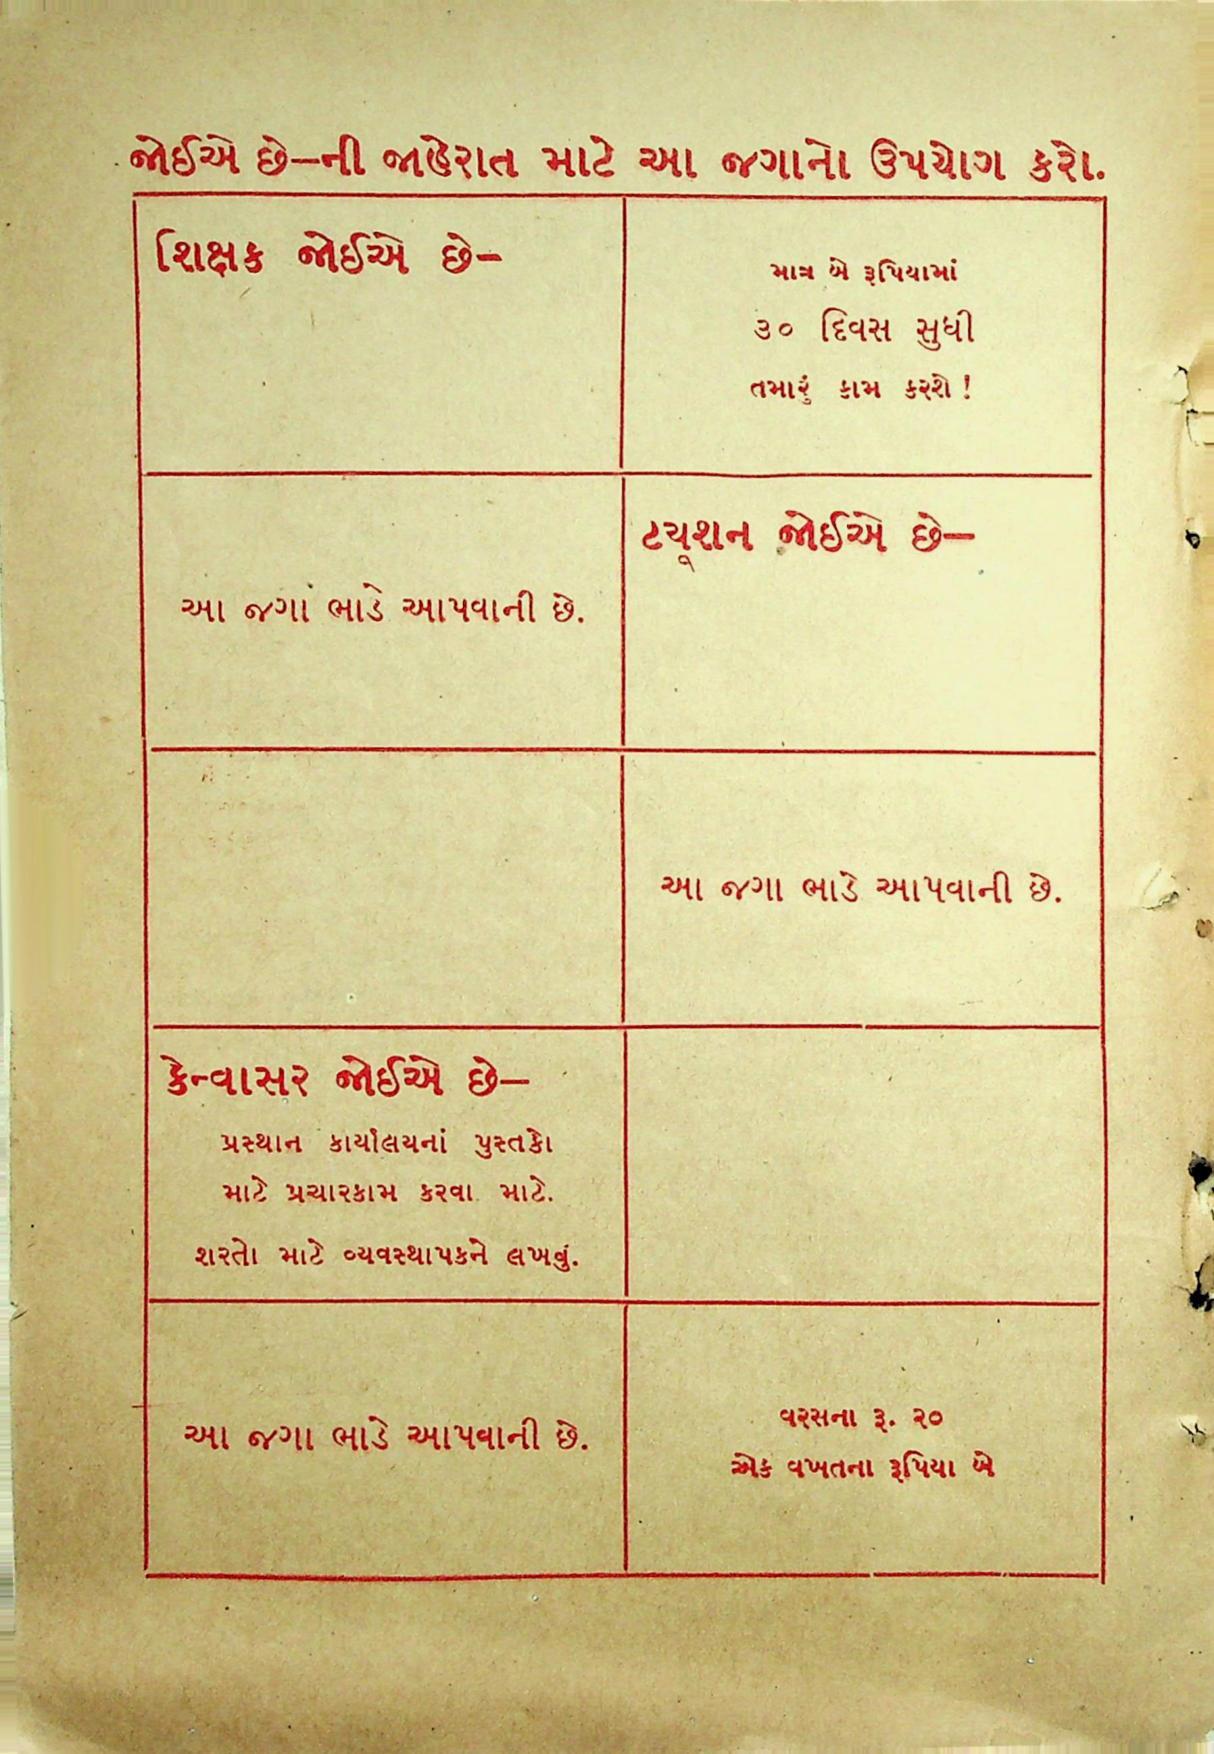 જોઈએ છે–ની જાહેરાત માટે આ જગાનો ઉપયોગ કરો.
શિક્ષક જોઈએ છે–
માત્ર બે રૂપિયામાં
૩૦ દિવસ સુધી
તમારું કામ કરશે !
આ જગા ભાડે આપવાની છે.
ટ્યૂશન જોઈએ છે–
આ જગા ભાડે આપવાની છે.
કેન્વાસર જોઈએ છે–
પ્રસ્થાન કાર્યાલયનાં પુસ્તકો
માટે પ્રચારકામ કરવા માટે.
શરતો માટે વ્યવસ્થાપકને લખવું.
આ જગા ભાડે આપવાની છે.
વરસના રૂ. ૨૦
એક વખતના રૂપિયા બે